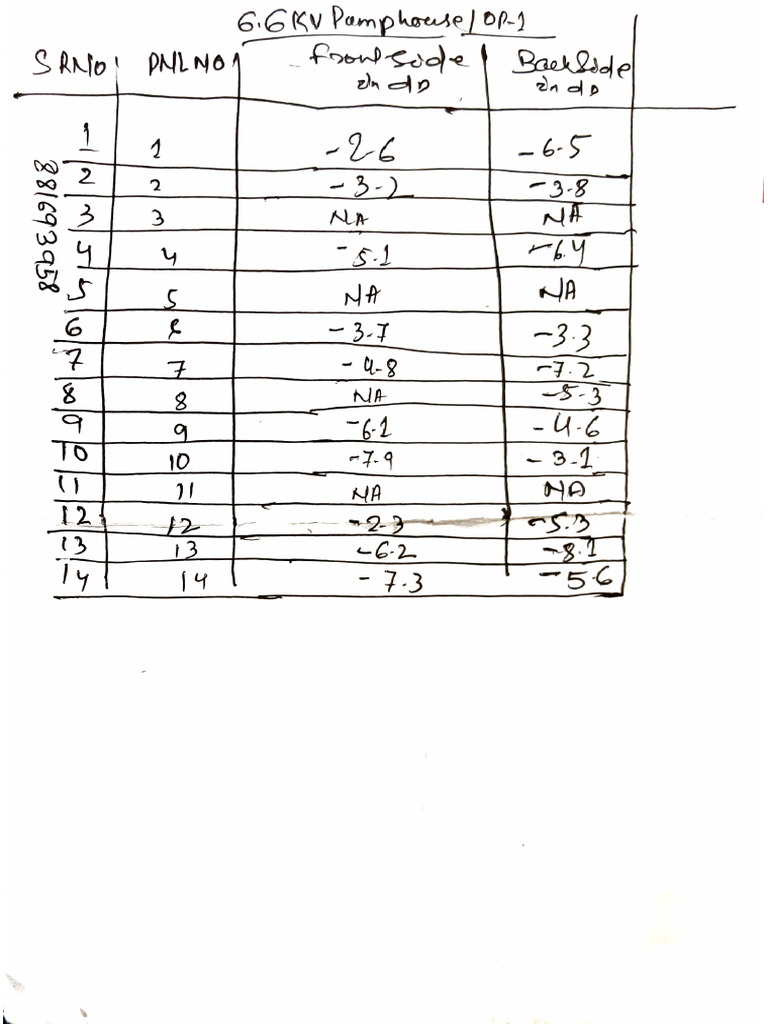 6.6KV Pamphouse/OP-1
SRNO PNLNO Front side Back Side
in dB in dB
1 1 -2.6 -6.5
2 2 -3.2 -3.8
3 3 NA NA
4 4 -5.1 -6.4
5 5 NA NA
6 6 -3.7 -3.3
7 7 -4.8 -7.2
8 8 NA -5.3
9 9 -6.1 -4.6
10 10 -7.9 -3.1
11 11 NA NA
12 12 -2.3 -5.3
13 13 -6.2 -8.1
14 14 -7.3 -5.6
881693958